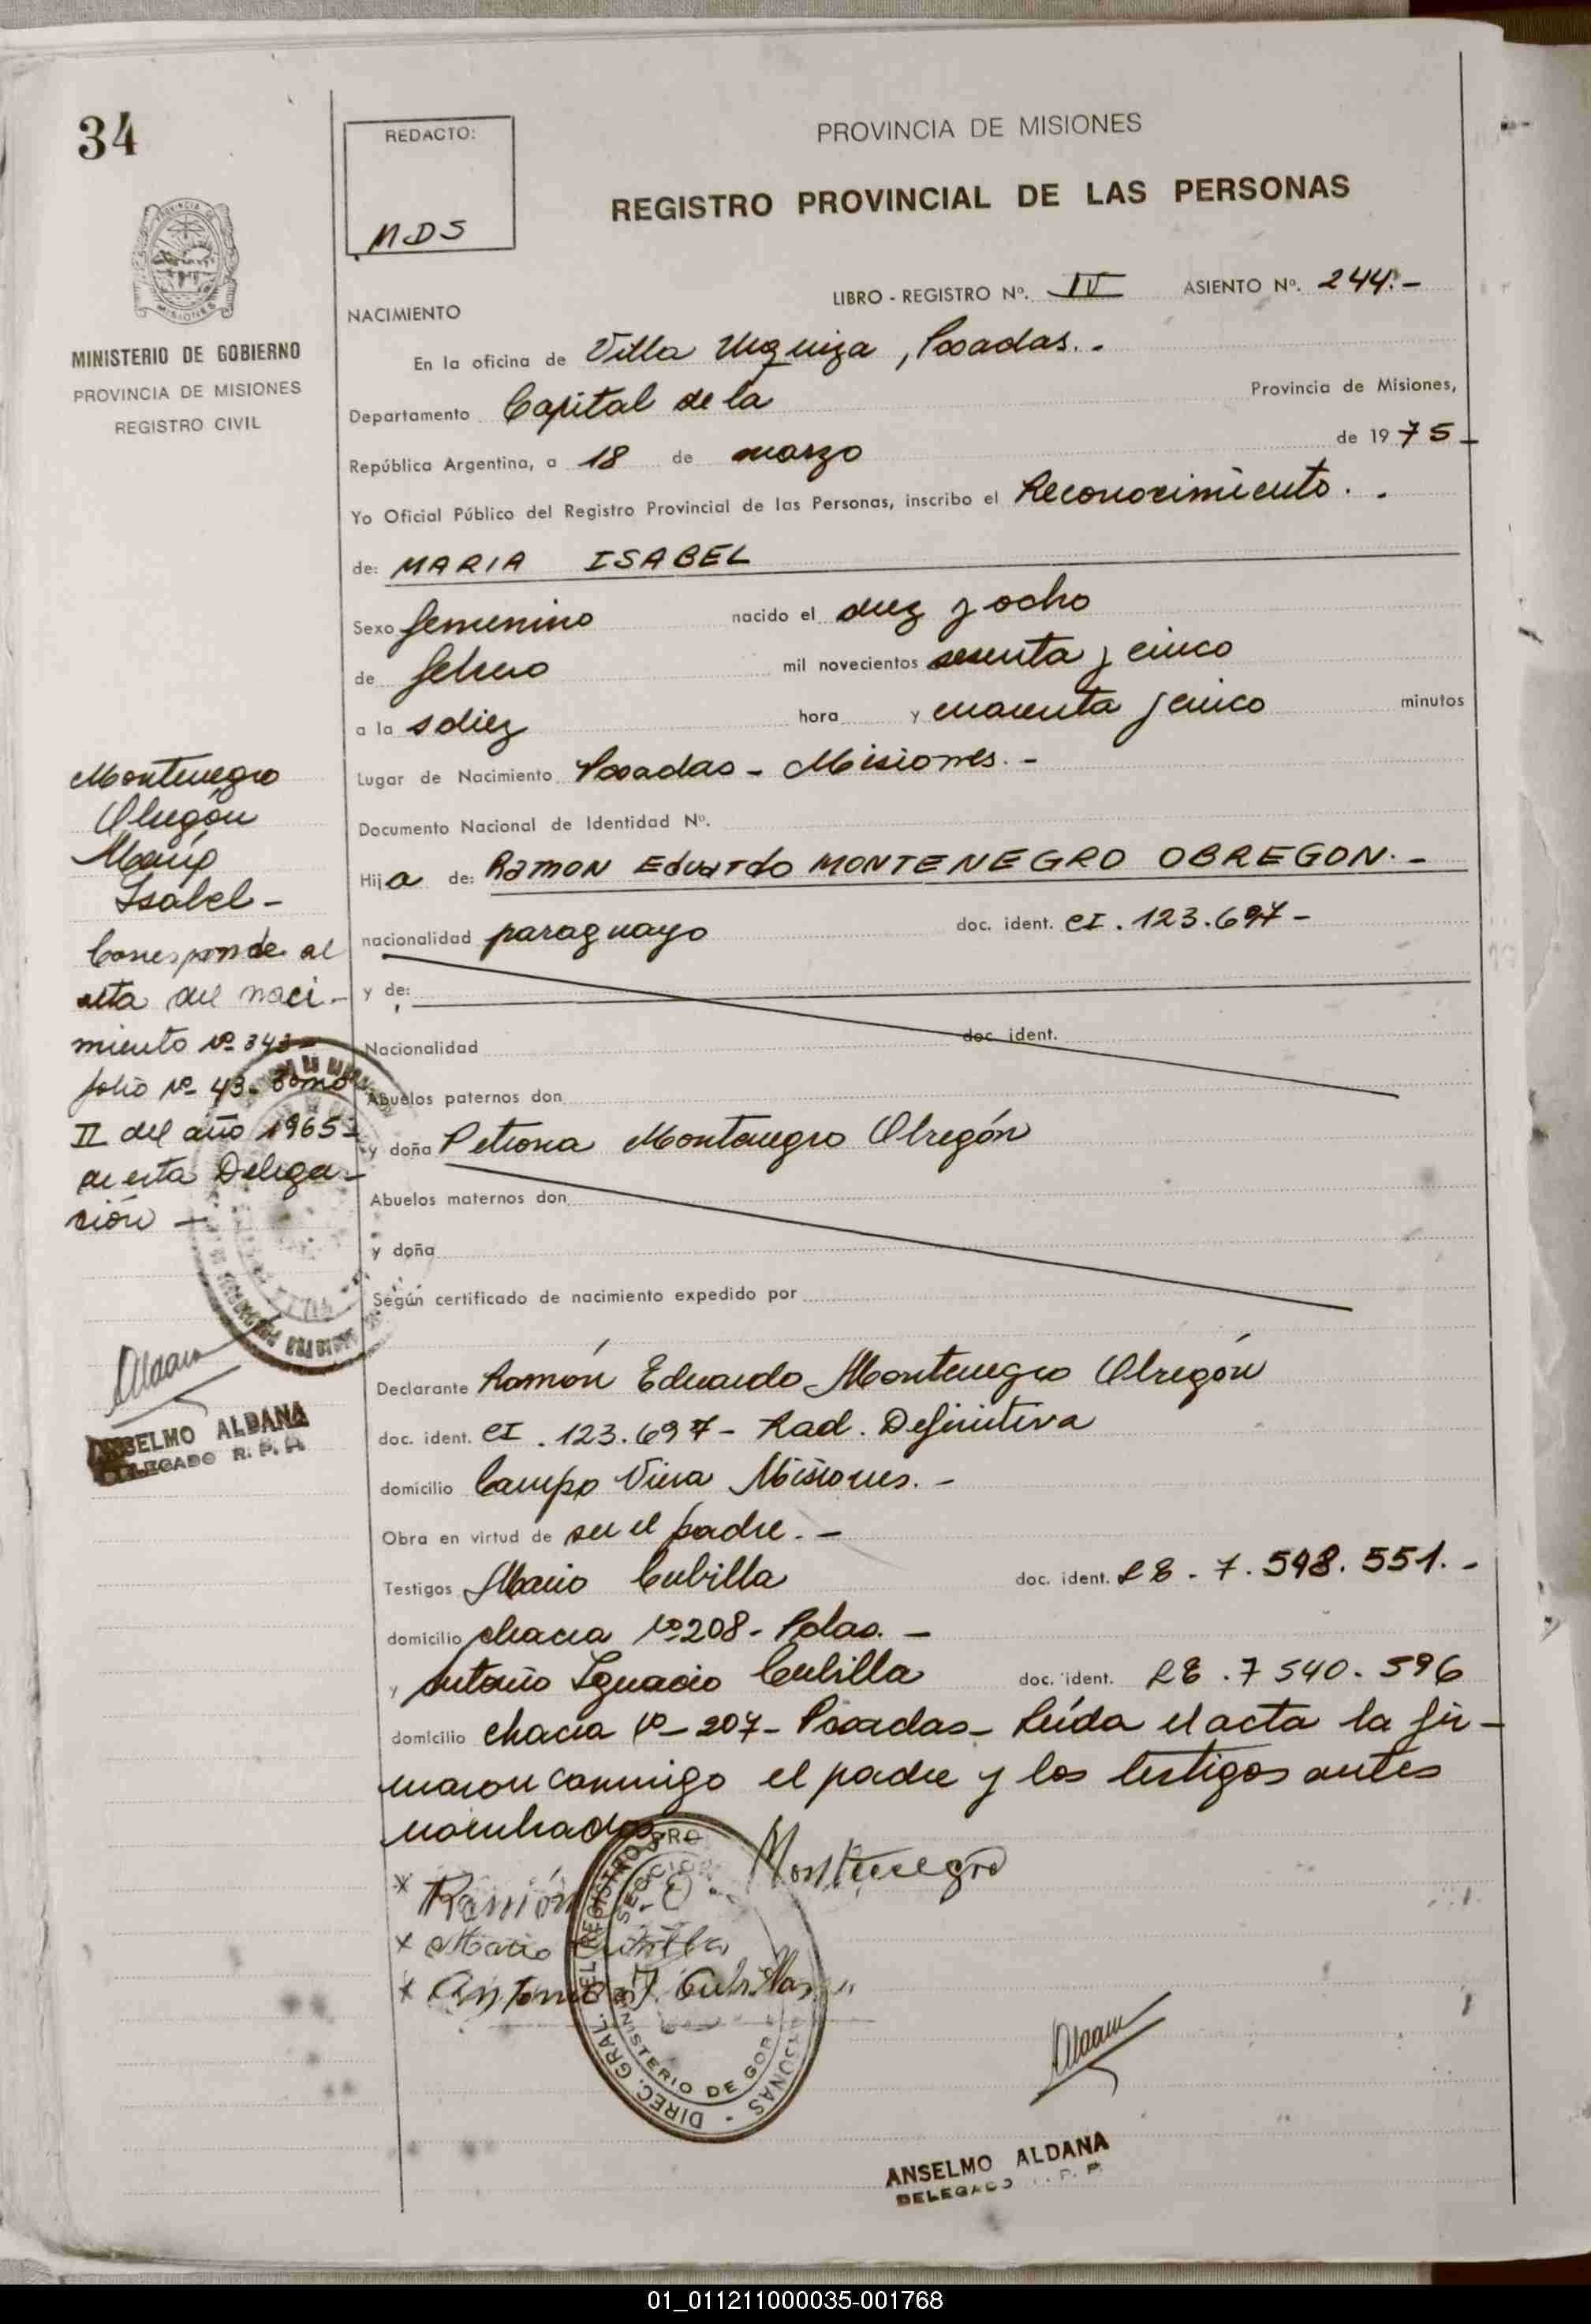 34
REDACTO:
MDS
PROVINCIA DE MISIONES
REGISTRO PROVINCIAL DE LAS PERSONAS
MINISTERIO DE GOBIERNO
PROVINCIA DE MISIONES
REGISTRO CIVIL
LIBRO - REGISTRO Nº. IV ASIENTO Nº. 244.-
NACIMIENTO
En la oficina de Villa Urquiza, Posadas.-
Departamento Capital de la Provincia de Misiones,
República Argentina, a 18 de marzo de 1975
Yo Oficial Público del Registro Provincial de las Personas, inscribo el Reconocimiento. .
de: MARIA ISABEL
Sexo femenino nacido el diez y ocho
de febrero mil novecientos sesenta y cinco
a la s diez hora y cuarenta y cinco minutos
Lugar de Nacimiento Posadas - Misiones. -
Documento Nacional de Identidad Nº.
Hija de: Ramon Eduardo MONTENEGRO OBREGON. -
nacionalidad paraguayo doc. ident. CI. 123.697 -
y de:
Nacionalidad doc. ident.
Abuelos paternos don
y doña Petrona Montenegro Obregón
Abuelos maternos don
y doña
Según certificado de nacimiento expedido por
Montenegro
Obregón
María
Isabel -
Corresponde al
acta del naci-
miento Nº 343 -
folio Nº 43 - tomo
II del año 1965 -
de esta Delega-
ción -
Aldana
ANSELMO ALDANA
DELEGADO R. P. P.
Declarante Ramón Eduardo Montenegro Obregón
doc. ident. CI. 123.697 - Rad. Definitiva
domicilio Campo Viera Misiones. -
Obra en virtud de ser el padre. -
Testigos Mario Cubilla doc. ident. LE. 7.598.551. -
domicilio chacra Nº 208 - Pdas. -
y Antonio Ignacio Cubilla doc. ident. LE. 7 540. 596
domicilio chacra Nº - 207 - Posadas - Leída el acta la fir-
maron conmigo el padre y los testigos antes
nombrados
x Ramón E. Montenegro
x Mario Cubilla
x Antonio I. Cubilla
DIREC. GRAL. DEL REGISTRO PERSONAS
MINISTERIO DE GOB
Aldana
ANSELMO ALDANA
DELEGADO R. P. P.
01_011211000035-001768